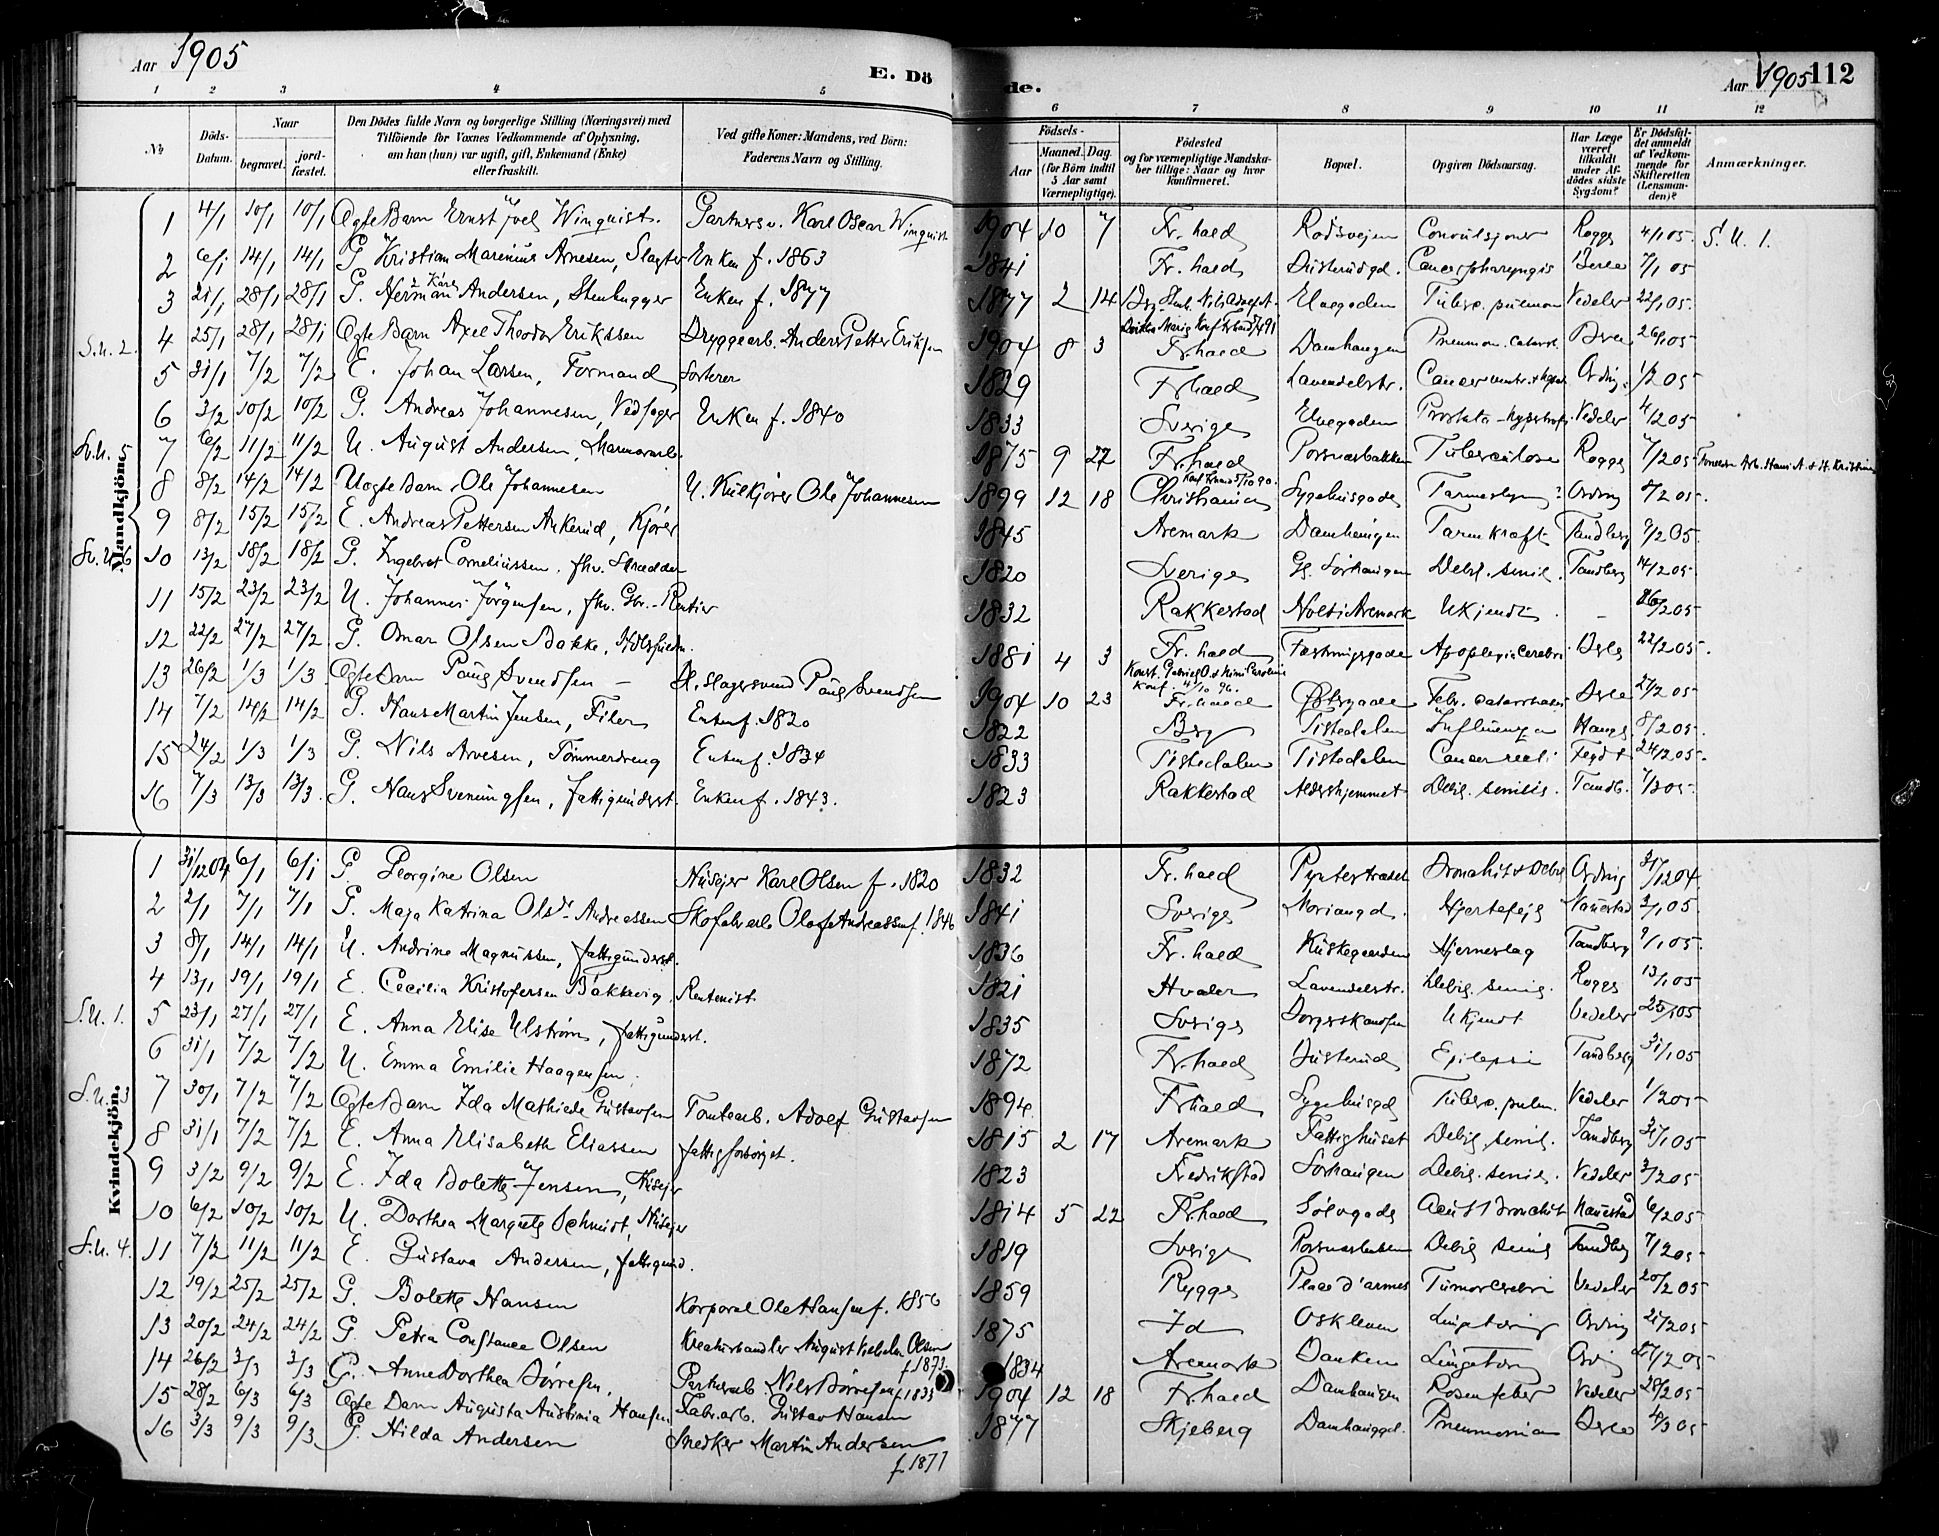 Aar 1905
E. Dö
de.
Aar 1905 112
1 2 3 4 5 6 7 8 9 10 11 12
№
Döds-Datum.
Naar
begravet.
jord-fæstet.
Den Dödes fulde Navn og borgerlige Stilling (Næringsvei) med
Tilföiende for Voxnes Vedkommende af Oplysning,
om han (hun) var ugift, gift, Enkemand (Enke)
eller fraskilt.
Ved gifte Koner: Mandens, ved Börn:
Faderens Navn og Stilling.
Födsels-
Aar
Maaned. Dag.
(for Börn indtil
5 Aar samt
Værnepligtige).
Födested
og for værnepligtige Mandska-
ber tillige: Naar og hvor
konfirmeret.
Bopæl.
Opgiven Dödsaarsag.
Har Læge
været
tilkaldt
under Af-
dödes sidste
Sygdom?
Er Dödsfal-
det anmeldt
af Vedkom-
mende for
Skifteretten
(Lensman-
den)?
Anmærkninger.
Mandkjön.
1 4/1 10/1 10/1 Ægte Barn Ernst Joel Winquist. Gartnersv. Karl Oscar Winquist 1904 10 7 Fr.hald Rødsveien Convulsjoner Rogge 4/1 05. S. U. 1.
2 6/1 14/1 14/1 G. Kristian Marenius Arnesen, Slagter Enken f. 1863 1841 Fr. hald Cancer pharyngis 7/1 05
3 21/1 28/1 28/1 G. Herman Andersen, Stenhugger Enken f. 1877 1877 2 14 Elvegaden Tuberc. pulmon Vedeler 22/1 05.
S.U. 2. 4 25/1 28/1 28/1 Ægte Barn Axel Theodor Erikssen Bryggearb. Anders Petter Eriksen 1904 8 3 Fr.hald Damhaugen Pneumon. catarrh. 26/1 05
5 31/1 7/2 7/2 E. Johan Larsen, Formand Sorterer 1829 Fr.hald Lavendelstr. Cancer Ording. 1/2 05
6 3/2 10/2 10/2 G. Andreas Johannesen, Vedsager Enken f. 1840 1833 Sverige Elvegaden Vedeler 4/2 05
Sv.U. 5 7 6/2 11/2 11/2 U. August Andersen, Marmorarb. 1875 9 27 Fr.hald Porsnæsbakken Tuberculose Rogge 7/2 05
8 8/2 14/2 14/2 Uægte Barn Ole Johannesen U. Kulkjører Ole Johannesen 1899 12 18 Christiania Sygehusgade Ording 8/2 05.
9 8/2 15/2 15/2 E. Andreas Pettersen Ankerud, Kjører 1845 Aremark Damhaugen Tarmkræft Tandberg 9/2 05
Sv. U. 6 10 13/2 18/2 18/2 G. Ingebret Corneliussen. fhv. Skrædder 1820 Sverige Gl. Sørhaugen Debil. senil. Tandberg 14/2 05
11 15/2 23/2 23/2 U. Johannes Jörgensen, fhv. Gbr.- Rentier 1832 Rakkestad Aremark Ukjendt. - 16/2 05
12 22/2 27/2 27/2 G. Omar Olsen Bakke, 1881 4 3 Fr. hald Fæstningsgade Apoplexia cerebri 22/2 05.
13 26/2 1/3 1/3 Ægte Barn Paul Svendsen - Slagersvend Paul Svendsen 1904 10 23 Fr. hald Østregade Febr. catarrhalis 27/2 05
14 7/2 14/2 14/2 G. Hans Martin Jensen, Filer Enken f. 1820 1822 Tistedalen Influenza Hauge 8/2 05.
15 24/2 1/3 1/3 G. Nils Arvesen, Tömmerdreng Enken f. 1834 1833 Tistedalen Tistedalen Cancer recti 24/2 05.
16 7/3 13/3 13/3 G. Hans Sveningsen, fattigunderst. Enken f. 1843. 1823 Rakkestad Alderhjemmet Debil. senilis. Tandb. 7/3 05.
Kvindekjön.
1 31/12 04 6/1 6/1 G. Georgine Olsen Husejer Karl Olsen f. 1820 1832 Fr. hald Ording 31/12 04.
2 2/1 7/1 7/1 G. Maja Katrina Olsdr. Andreassen Skofabarb. Olaf Andreassen f. 1846 1841 Sverige Hjertefeil Nauestad 3/1 05.
3 8/1 14/1 14/1 U. Andrine Magnussen, fattigunderst. 1836 Fr. hald Kuskegaarden Hjerneslag Tandberg 9/1 05.
4 13/1 19/1 19/1 E. Cecilia Kristofersen Bakkevig. Rentenist. 1821 Hvaler Lavendelstr. Debil. senil. Rogge 13/1 05
S.U. 1. 5 23/1 27/1 27/1 E. Anna Elise Ulström, fattigunderst. 1835 Sverige Ukjendt Vedeler 25/1 05
6 31/1 7/2 7/2 U. Emma Emilie Haagensen. 1872 Fr.hald Epilepsi Tandberg 31/1 05
S.U. 3 7 30/1 7/2 7/2 Ægte Barn Ida Mathilde Gustavsen Tomtearb. Adolf Gustavsen 1894. Fr.hald Sygehusgd Tuberc. pulm. Vedeler 1/2 05
8 31/1 7/2 7/2 E. Anna Elisabeth Eliassen fattigforsörget. 1815 2 17 Aremark Fattighuset Debil. senil. Tandberg 31/1 05
9 3/2 9/2 9/2 E. Ida Bolette Jensen, Husejer 1823 Fredrikstad Sørhaugen Debil. senil. Vedeler 3/2 05
10 6/2 10/2 10/2 U. Dorthea Margrete Schmidt, Husejer 1814 5 22 Fr.hald Sølvgade Acut Bronchit Nauestad 6/2 05
S.U. 4. 11 7/2 11/2 11/2 E. Gustava Andersen, fattigund. 1819 Sverige Porsnæsbakken Debil senil Tandberg 7/2 05
12 19/2 25/2 25/2 G. Bolette Hansen Korporal Ole Hansen f. 1856 1859 Rygge Place d'armes Tumor cerebri Vedeler 20/2 05
13 20/2 24/2 24/2 G. Petra Constance Olsen Kreaturhandler August Vilhelm Olsen f. 1873 1875 Id Oskleven Lungetæring Ording 21/2 05
14 26/2 3/3 3/3 G. Anne Dorthea Børresen. Nils Børresen f. 1835 1834 Aremark Banken Lungetæring 27/2 05
15 28/2 6/3 6/3 Ægte Barn Augusta Austinia Hansen Fabr.arb. Gustav Hansen 1904 12 18 Fr. hald Damhaugen Rosenfeber Vedeler 28/2 05
16 3/3 9/3 9/3 G. Hilda Andersen Snedker Martin Andersen f. 1877 1877 Skjeberg Damhauggd. Pneumonia 4/3 05